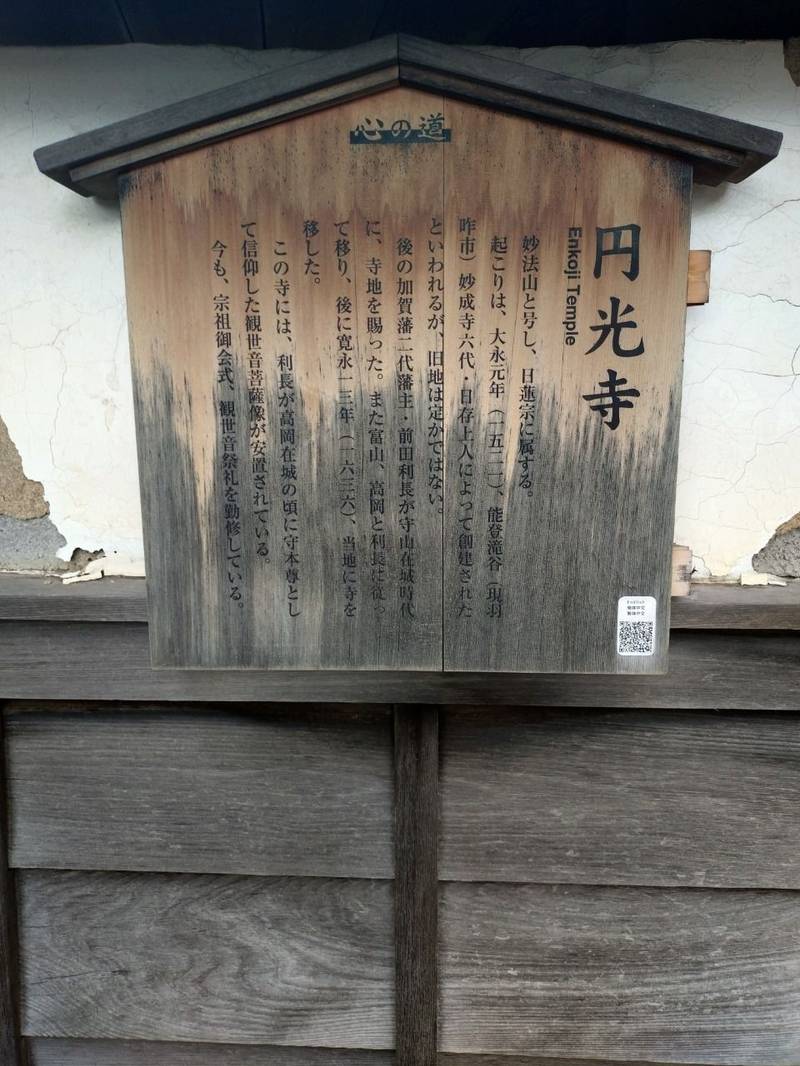 心の道
円光寺
Enkoji Temple
妙法山と号し、日蓮宗に属する。
起こりは、大永元年（一五二一）、能登滝谷（現羽
咋市）妙成寺六代・日存上人によって創建された
といわれるが、旧地は定かではない。
後の加賀藩二代藩主・前田利長が守山在城時代
に、寺地を賜った。また富山、高岡と利長に従っ
て移り、後に寛永一三年（一六三六）、当地に寺を
移した。
この寺には、利長が高岡在城の頃に守本尊とし
て信仰した観世音菩薩像が安置されている。
今も、宗祖御会式、観世音祭礼を勤修している。
English
简体中文
繁体中文